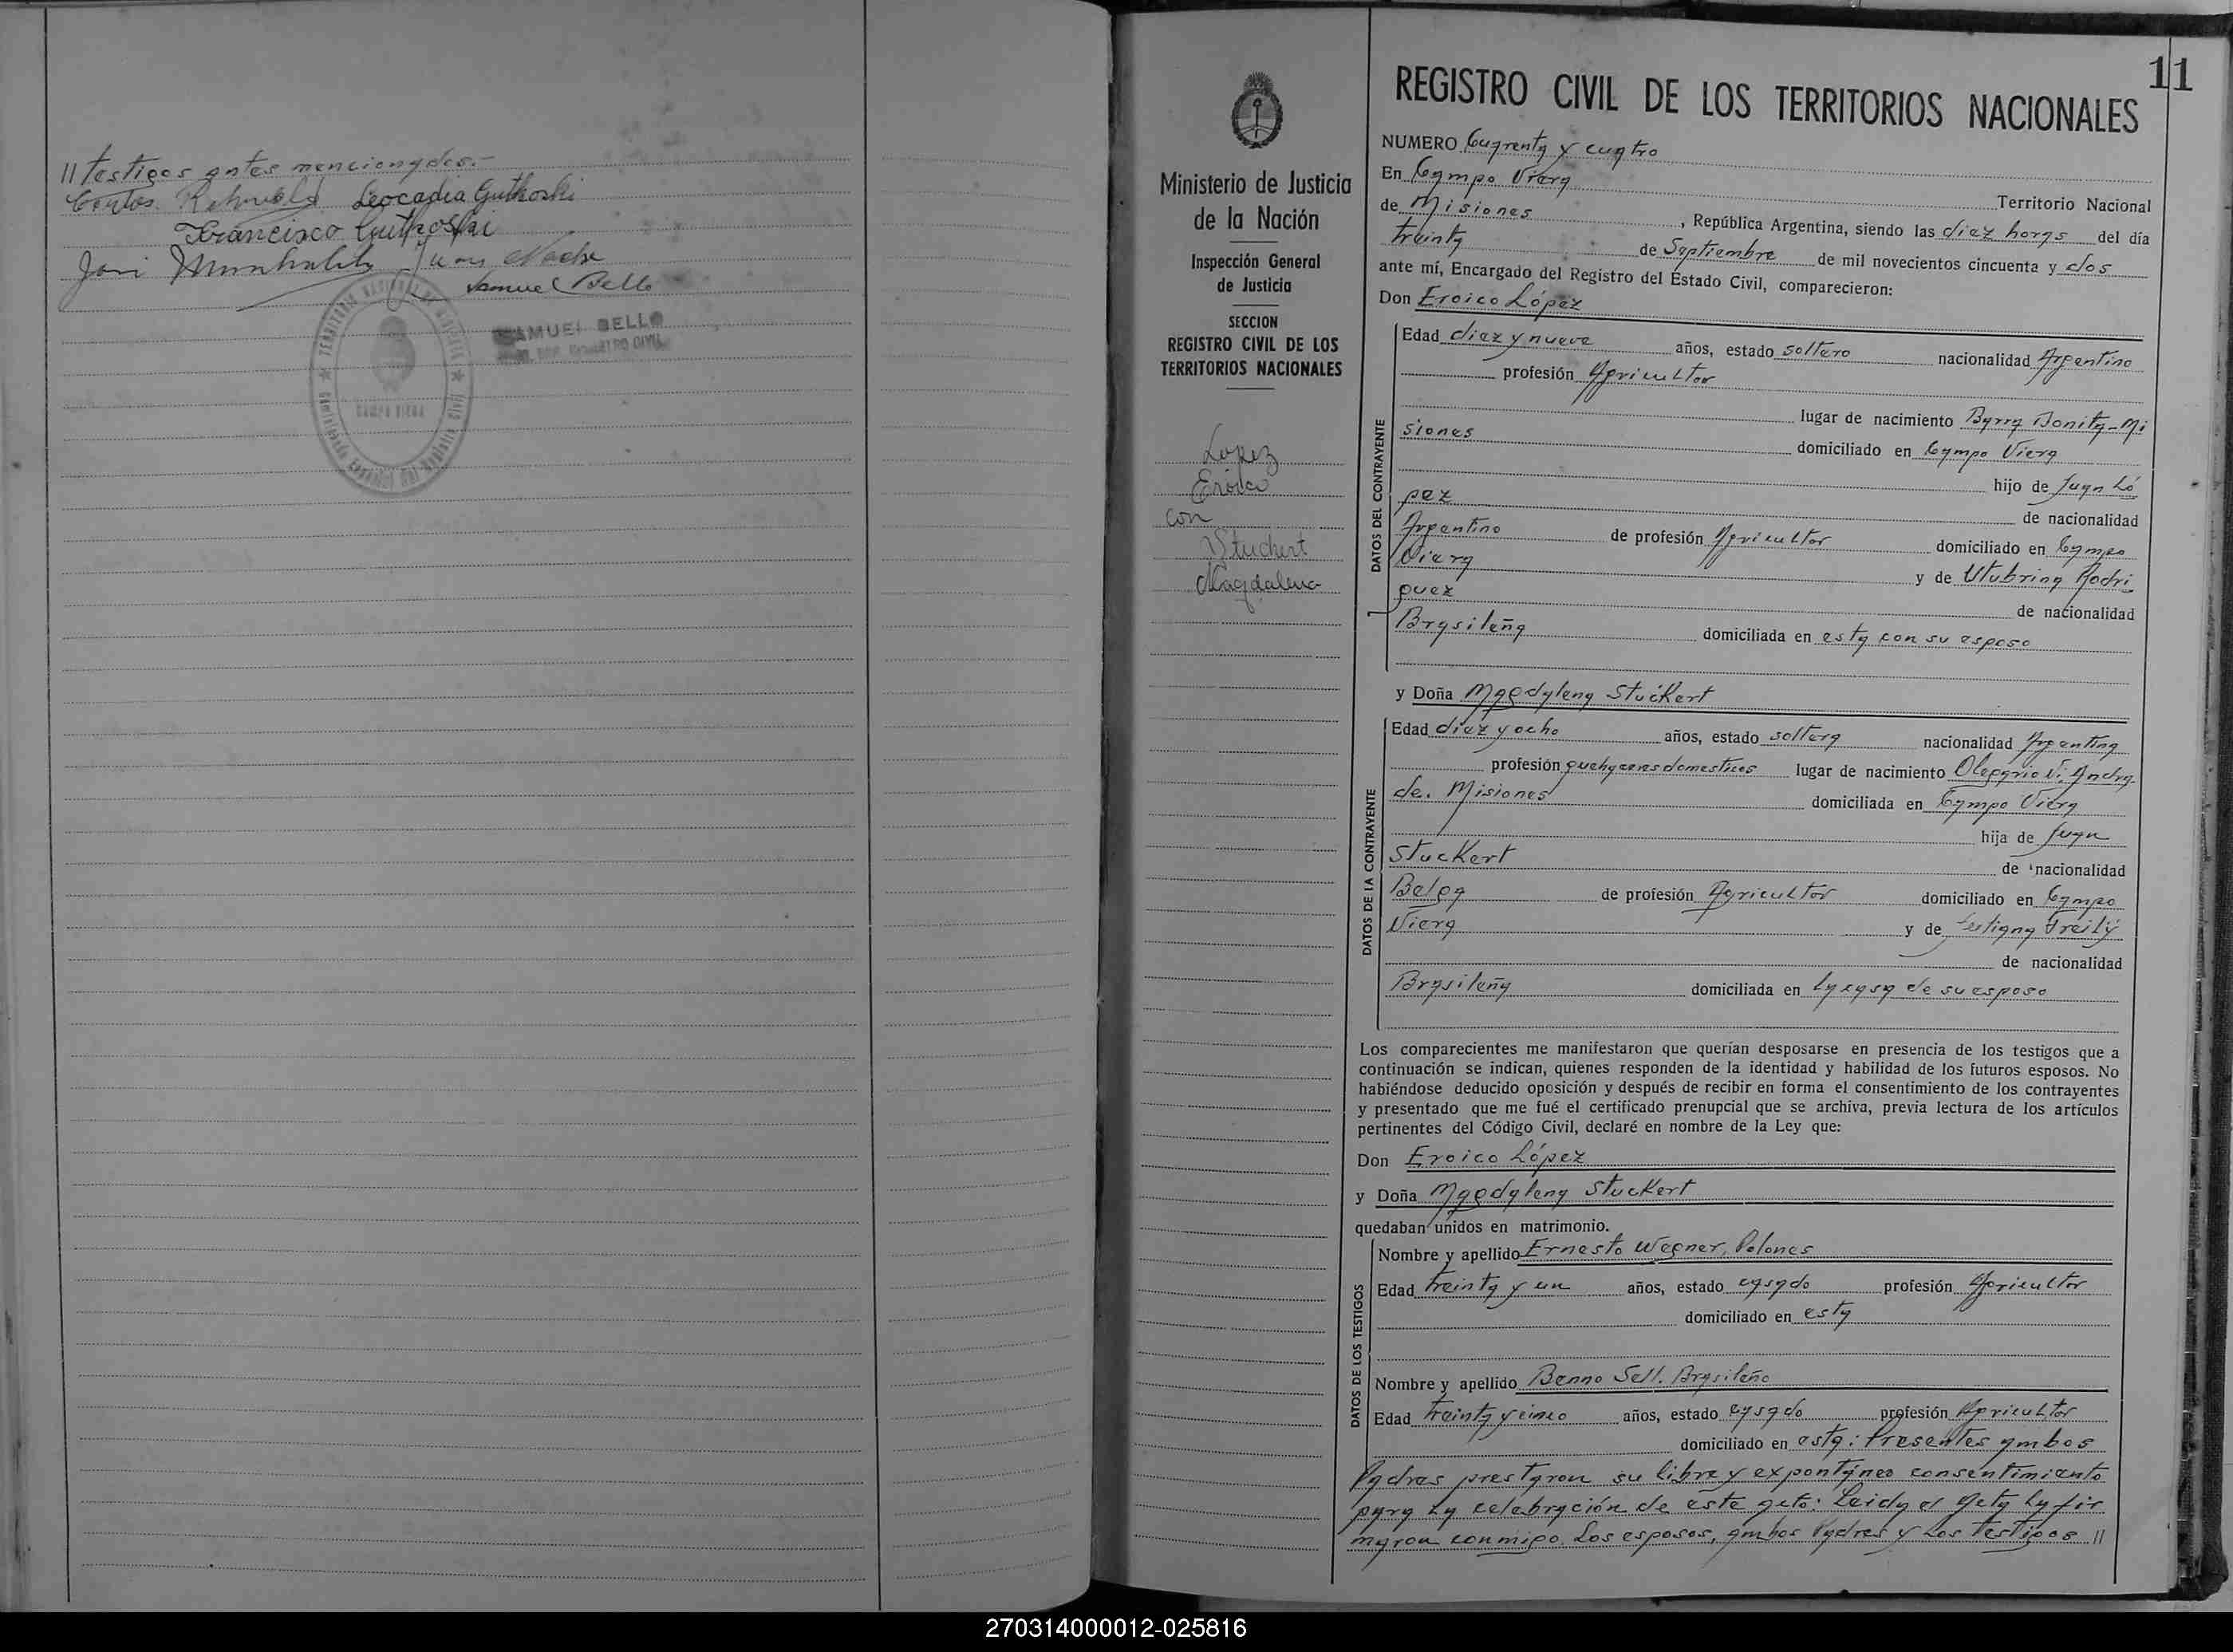 // testigos antes mencionados.-
Carlos Leocadia Gutkoski
Francisco Gutkoski
José Juan
Samuel Bello
SAMUEL BELLO
REGISTRO CIVIL
CAMPO VIERA
11
Ministerio de Justicia
de la Nación
Inspección General
de Justicia
SECCION
REGISTRO CIVIL DE LOS
TERRITORIOS NACIONALES
Lopez
Eroico
con
Stuckert
Magdalena
REGISTRO CIVIL DE LOS TERRITORIOS NACIONALES
NUMERO Cuarenta y cuatro
En Campo Viera Territorio Nacional
de Misiones, República Argentina, siendo las diez horas del día
treinta de Septiembre de mil novecientos cincuenta y dos
ante mí, Encargado del Registro del Estado Civil, comparecieron:
Don Eroico López
DATOS DEL CONTRAYENTE
Edad diez y nueve años, estado soltero nacionalidad Argentino
profesión Agricultor
lugar de nacimiento Barra Bonita-Mi
siones domiciliado en Campo Viera
hijo de Juan Ló
pez de nacionalidad
Argentino de profesión Agricultor domiciliado en Campo
Viera y de Utubrina Rodri
guez de nacionalidad
Brasileña domiciliada en esta con su esposo
y Doña Magdalena Stuckert
DATOS DE LA CONTRAYENTE
Edad diez y ocho años, estado soltera nacionalidad Argentina
profesión quehaceres domesticos lugar de nacimiento Olegario V. Andra
de. Misiones domiciliada en Campo Viera
hija de Juan
Stuckert de nacionalidad
Belga de profesión Agricultor domiciliado en Campo
Viera y de
de nacionalidad
Brasileña domiciliada en la casa de su esposo
Los comparecientes me manifestaron que querían desposarse en presencia de los testigos que a
continuación se indican, quienes responden de la identidad y habilidad de los futuros esposos. No
habiéndose deducido oposición y después de recibir en forma el consentimiento de los contrayentes
y presentado que me fué el certificado prenupcial que se archiva, previa lectura de los artículos
pertinentes del Código Civil, declaré en nombre de la Ley que:
Don Eroico López
y Doña Magdalena Stuckert
quedaban unidos en matrimonio.
DATOS DE LOS TESTIGOS
Nombre y apellido Ernesto Wegner, Polones
Edad treinta y un años, estado casado profesión Agricultor
domiciliado en esta
Nombre y apellido Benno Sell. Brasileño
Edad treinta y cinco años, estado casado profesión Agricultor
domiciliado en esta: Presentes ambos
Padres prestaron su libre y expontáneo consentimiento
para la celebración de este acto: Leida el Acta la fir
maron conmigo. Los esposos, ambos Padres y los testigos //
270314000012-025816